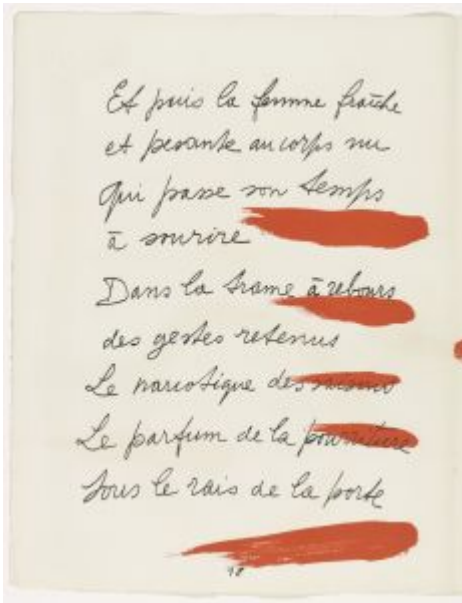 Et puis la femme fraîche
et pesante au corps nu
qui passe son temps
à sourire
Dans la trame à rebours
des gestes retenus
Le narcotique des raisins
Le parfum de la pourriture
Sous le rais de la porte
98